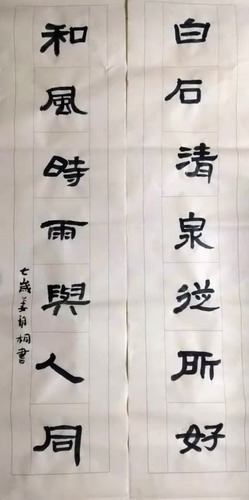 白石清泉從所好
和風時雨與人同
七歲姜
桐書